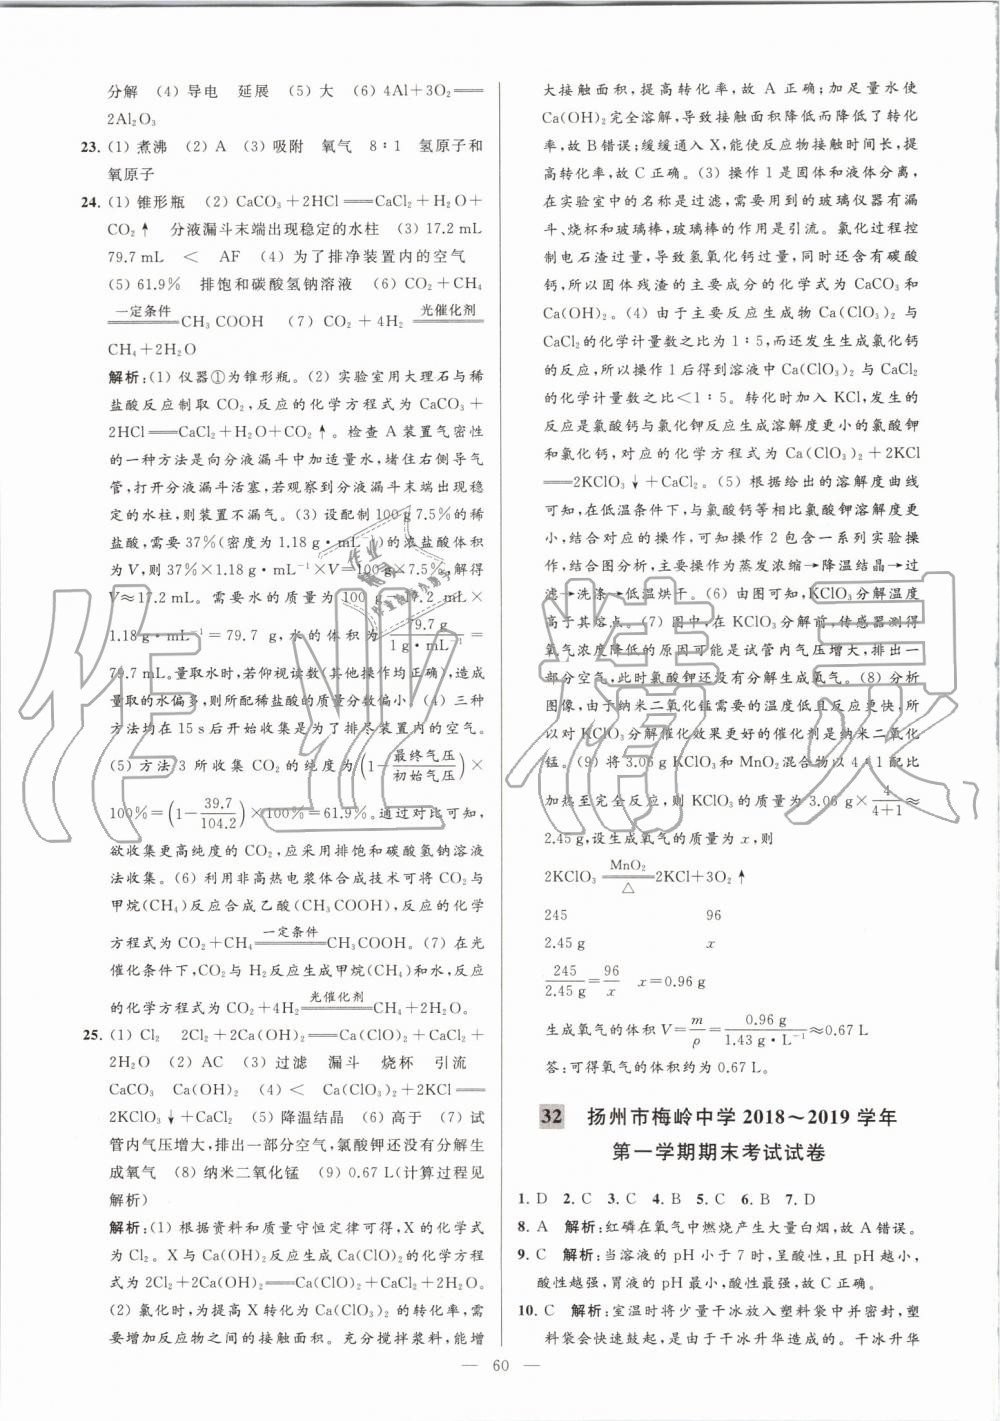 分解 (4) 导电 延展 (5) 大 (6) 4Al+3O₂══
2Al₂O₃
23. (1) 煮沸 (2) A (3) 吸附 氧气 8∶1 氢原子和
氧原子
24. (1) 锥形瓶 (2) CaCO₃+2HCl══CaCl₂+H₂O+
CO₂↑ 分液漏斗末端出现稳定的水柱 (3) 17.2 mL
79.7 mL < AF (4) 为了排净装置内的空气
(5) 61.9% 排饱和碳酸氢钠溶液 (6) CO₂+CH₄
══一定条件══CH₃COOH (7) CO₂+4H₂══光催化剂══
CH₄+2H₂O
解析:(1) 仪器①为锥形瓶。(2) 实验室用大理石与稀
盐酸反应制取 CO₂,反应的化学方程式为 CaCO₃+
2HCl══CaCl₂+H₂O+CO₂↑。检查 A 装置气密性
的一种方法是向分液漏斗中加适量水,堵住右侧导气
管,打开分液漏斗活塞,若观察到分液漏斗末端出现稳
定的水柱,则装置不漏气。(3) 设配制 100 g 7.5%的稀
盐酸,需要 37%(密度为 1.18 g·mL⁻¹)的浓盐酸体积
为 V,则 37%×1.18 g·mL⁻¹×V=100 g×7.5%,解得
V≈17.2 mL。需要水的质量为 100 g-17.2 mL×
1.18 g·mL⁻¹=79.7 g,水的体积为 79.7 g/1 g·mL⁻¹=
79.7 mL。量取水时,若仰视读数(其他操作均正确),造成
量取的水偏多,则所配稀盐酸的质量分数偏小。(4) 三种
方法均在 15 s 后开始收集是为了排尽装置内的空气。
(5) 方法 3 所收集 CO₂ 的纯度为(1-最终气压/初始气压)×
100%=(1-39.7/104.2)×100%=61.9%。通过对比可知,
欲收集更高纯度的 CO₂,应采用排饱和碳酸氢钠溶液
法收集。(6) 利用非高热电浆体合成技术可将 CO₂ 与
甲烷(CH₄)反应合成乙酸(CH₃COOH),反应的化学
方程式为 CO₂+CH₄══一定条件══CH₃COOH。(7) 在光
催化条件下,CO₂ 与 H₂ 反应生成甲烷(CH₄)和水,反应
的化学方程式为 CO₂+4H₂══光催化剂══CH₄+2H₂O。
25. (1) Cl₂ 2Cl₂+2Ca(OH)₂══Ca(ClO)₂+CaCl₂+
2H₂O (2) AC (3) 过滤 漏斗 烧杯 引流
CaCO₃ Ca(OH)₂ (4) < Ca(ClO₃)₂+2KCl══
2KClO₃↓+CaCl₂ (5) 降温结晶 (6) 高于 (7) 试
管内气压增大,排出一部分空气,氯酸钾还没有分解生
成氧气 (8) 纳米二氧化锰 (9) 0.67 L(计算过程见
解析)
解析:(1) 根据资料和质量守恒定律可得,X 的化学式
为 Cl₂。X 与 Ca(OH)₂ 反应生成 Ca(ClO)₂ 的化学方程
式为 2Cl₂+2Ca(OH)₂══Ca(ClO)₂+CaCl₂+2H₂O。
(2) 氯化时,为提高 X 转化为 Ca(ClO₃)₂ 的转化率,需
要增加反应物之间的接触面积。充分搅拌浆料,能增
大接触面积,提高转化率,故 A 正确;加足量水使
Ca(OH)₂ 完全溶解,导致接触面积降低而降低了转化
率,故 B 错误;缓缓通入 X,能使反应物接触时间长,提
高转化率,故 C 正确。(3) 操作 1 是固体和液体分离,
在实验室中的名称是过滤,需要用到的玻璃仪器有漏
斗、烧杯和玻璃棒,玻璃棒的作用是引流。氯化过程控
制电石渣过量,导致氢氧化钙过量,同时还含有碳酸
钙,所以固体残渣的主要成分的化学式为 CaCO₃ 和
Ca(OH)₂。(4) 由于主要反应生成物 Ca(ClO₃)₂ 与
CaCl₂ 的化学计量数之比为 1∶5,而还发生生成氯化钙
的反应,所以操作 1 后得到溶液中 Ca(ClO₃)₂ 与 CaCl₂
的化学计量数之比<1∶5。转化时加入 KCl,发生的
反应是氯酸钙与氯化钾反应生成溶解度更小的氯酸钾
和氯化钙,对应的化学方程式为 Ca(ClO₃)₂+2KCl
══2KClO₃↓+CaCl₂。(5) 根据给出的溶解度曲线
可知,在低温条件下,与氯酸钙等相比氯酸钾溶解度更
小,结合对应的操作,可知操作 2 包含一系列实验操
作,结合图分析,主要操作为蒸发浓缩→降温结晶→过
滤→洗涤→低温烘干。(6) 由图可知,KClO₃ 分解温度
高于其熔点。(7) 图中,在 KClO₃ 分解前,传感器测得
氧气浓度降低的原因可能是试管内气压增大,排出一
部分空气,此时氯酸钾还没有分解生成氧气。(8) 分析
图像,由于纳米二氧化锰需要的温度低且反应更快,所
以对 KClO₃ 分解催化效果更好的催化剂是纳米二氧化
锰。(9) 将 3.06 g KClO₃ 和 MnO₂ 混合物以 4∶1 配比
加热至完全反应,则 KClO₃ 的质量为 3.06 g×4/(4+1)≈
2.45 g,设生成氧气的质量为 x,则
2KClO₃ ══MnO₂/△══2KCl+3O₂↑
245 96
2.45 g x
245/2.45 g=96/x x=0.96 g
生成氧气的体积 V=m/ρ=0.96 g/1.43 g·L⁻¹≈0.67 L
答:可得氧气的体积约为 0.67 L。
32 扬州市梅岭中学 2018～2019 学年
第一学期期末考试试卷
1. D 2. C 3. C 4. B 5. C 6. B 7. D
8. A 解析:红磷在氧气中燃烧产生大量白烟,故 A 错误。
9. C 解析:当溶液的 pH 小于 7 时,呈酸性,且 pH 越小,
酸性越强,胃液的 pH 最小,酸性最强,故 C 正确。
10. C 解析:室温时将少量干冰放入塑料袋中并密封,塑
料袋会快速鼓起,是由于干冰升华造成的。干冰升华
— 60 —
作业精灵